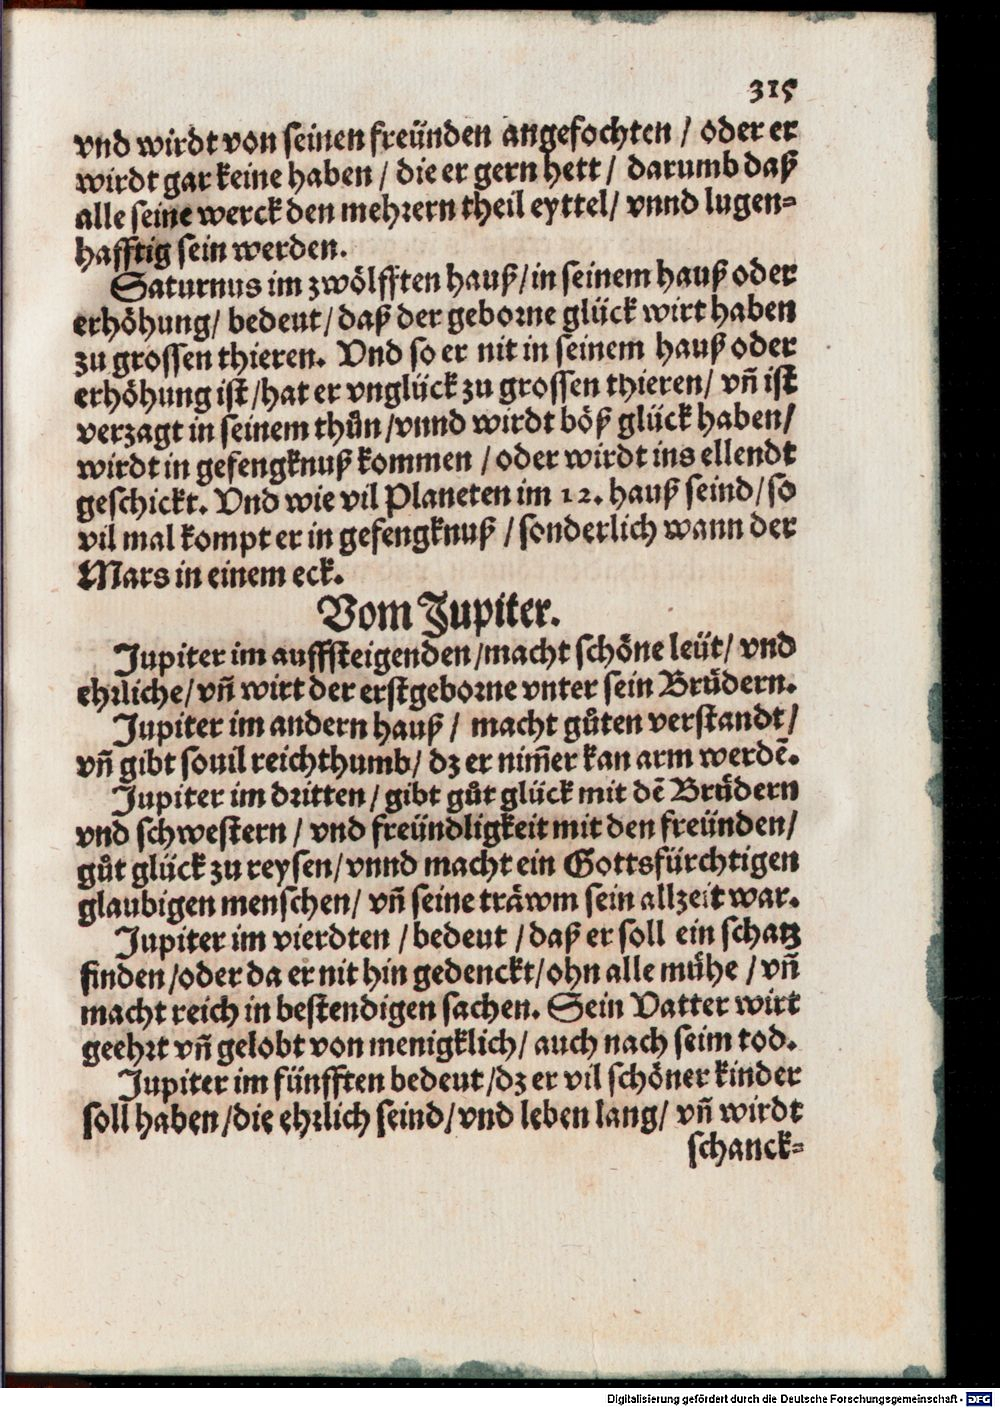 315
vnd wirdt von seinen freünden angefochten / oder er
wirdt gar keine haben / die er gern hett / darumb daß
alle seine werck den mehrern theil eyttel / vnnd lugen=
hafftig sein werden.
Saturnus im zwölfften hauß / in seinem hauß oder
erhöhung / bedeut / daß der geborne glück wirt haben
zu grossen thieren. Vnd so er nit in seinem hauß oder
erhöhung ist / hat er vnglück zu grossen thieren / vñ ist
verzagt in seinem thůn / vnnd wirdt böß glück haben /
wirdt in gefengknuß kommen / oder wirdt ins ellendt
geschickt. Vnd wie vil Planeten im 12. hauß seind / so
vil mal kompt er in gefengknuß / sonderlich wann der
Mars in einem eck.
Vom Jupiter.
Jupiter im auffsteigenden / macht schöne leüt / vnd
ehrliche / vñ wirt der erstgeborne vnter sein Brüdern.
Jupiter im andern hauß / macht gůten verstandt /
vñ gibt souil reichthumb / dz er nim̃er kan arm werdẽ.
Jupiter im dritten / gibt gůt glück mit dẽ Brüdern
vnd schwestern / vnd freündligkeit mit den freünden /
gůt glück zu reysen / vnnd macht ein Gottsfürchtigen
glaubigen menschen / vñ seine träwm sein allzeit war.
Jupiter im vierdten / bedeut / daß er soll ein schatz
finden / oder da er nit hin gedenckt / ohn alle mühe / vñ
macht reich in bestendigen sachen. Sein Vatter wirt
geehrt vñ gelobt von menigklich / auch nach seim tod.
Jupiter im fünfften bedeut / dz er vil schöner kinder
soll haben / die ehrlich seind / vnd leben lang / vñ wirdt
schanck=
Digitalisierung gefördert durch die Deutsche Forschungsgemeinschaft - DFG